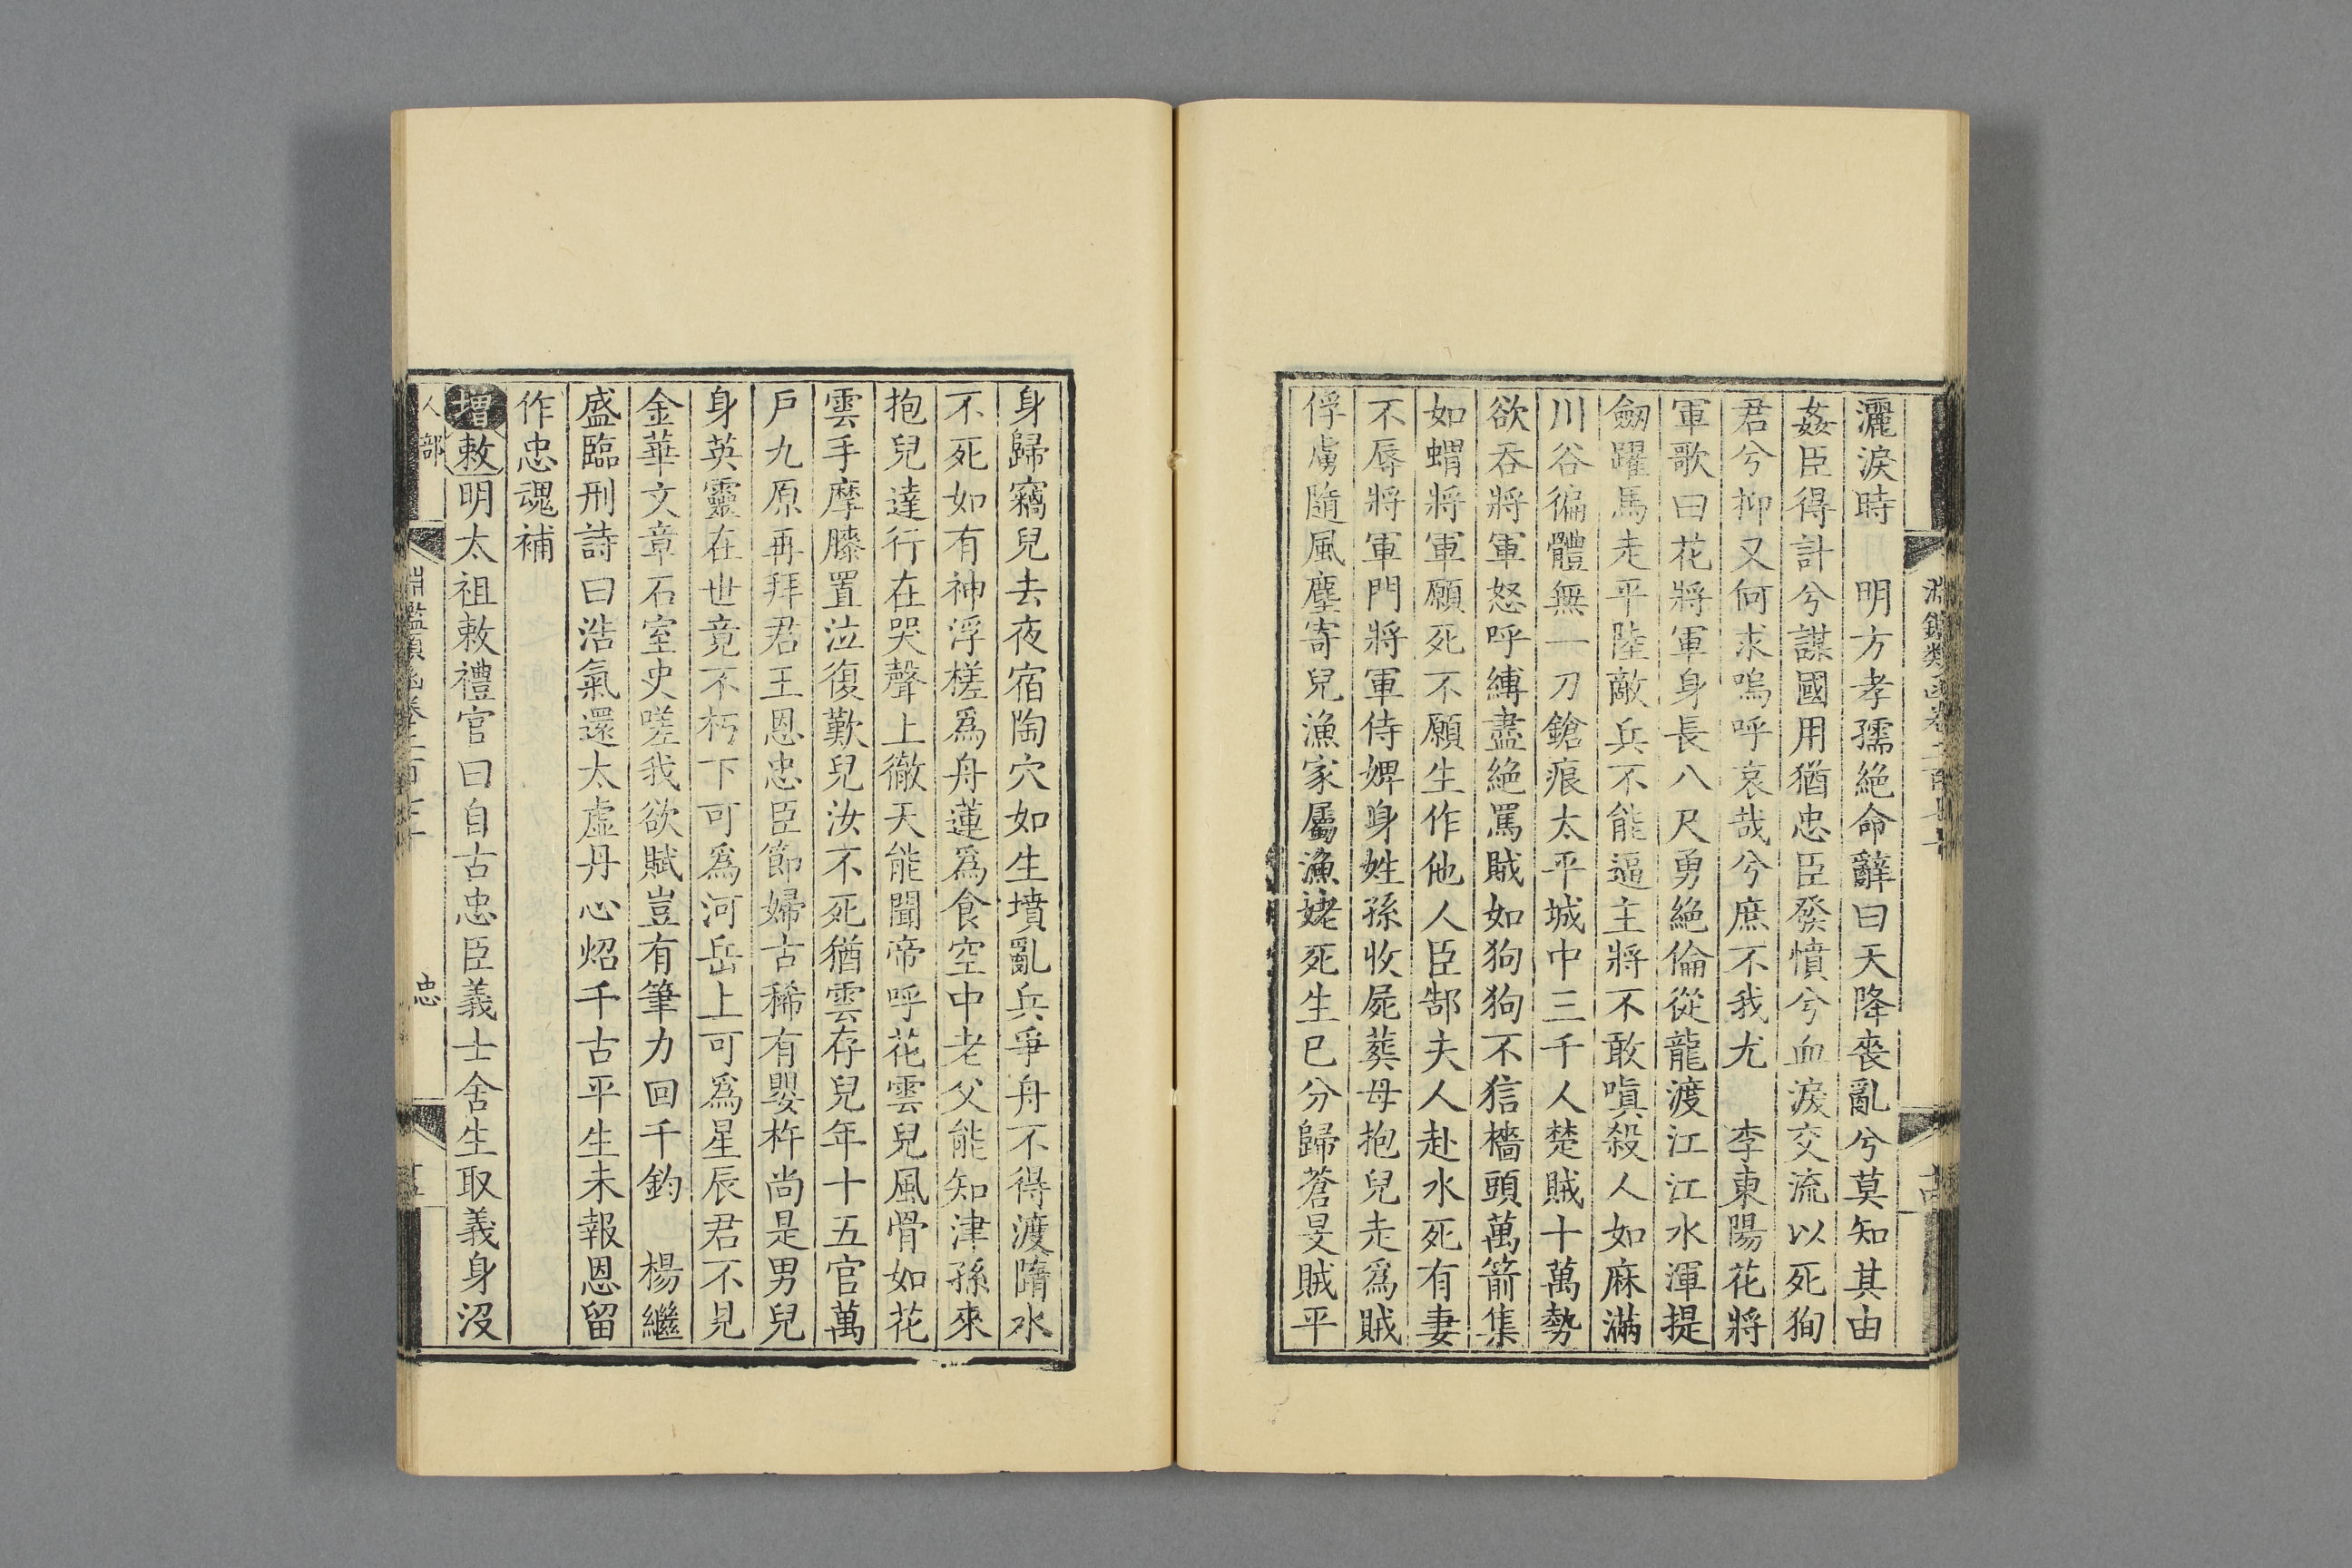 灑淚時　明方孝孺絶命辭曰天降喪亂兮莫知其由
姦臣得計兮謀國用猶忠臣發憤兮血淚交流以死狥
君兮抑又何求嗚呼哀哉兮庶不我尤　李東陽花將
軍歌曰花將軍身長八尺勇絶倫從龍渡江江水渾提
劔躍馬走平陸敵兵不能逼主將不敢嗔殺人如麻滿
川谷徧體無一刀鎗痕太平城中三千人楚賊十萬勢
欲吞將軍怒呼縛盡絶罵賊如狗狗不狺檣頭萬箭集
如蝟將軍願死不願生作他人臣郜夫人赴水死有妻
不辱將軍門將軍侍婢身姓孫收屍葬母抱兒走爲賊
俘虜隨風塵寄兒漁家屬漁姥死生已分歸蒼旻賊平
身歸竊兒去夜宿陶穴如生墳亂兵爭舟不得渡墮水
不死如有神浮槎爲舟蓮爲食空中老父能知津孫來
抱兒達行在哭聲上徹天能聞帝呼花雲兒風骨如花
雲手摩膝置泣復歎兒汝不死猶雲存兒年十五官萬
戶九原再拜君王恩忠臣節婦古稀有嬰杵尚是男兒
身英靈在世竟不朽下可爲河岳上可爲星辰君不見
金華文章石室史嗟我欲賦豈有筆力回千鈞　楊繼
盛臨刑詩曰浩氣還太虛丹心炤千古平生未報恩留
作忠魂補
增敕明太祖敕禮官曰自古忠臣義士舍生取義身沒
人部　淵鑑類函卷二百七十　忠